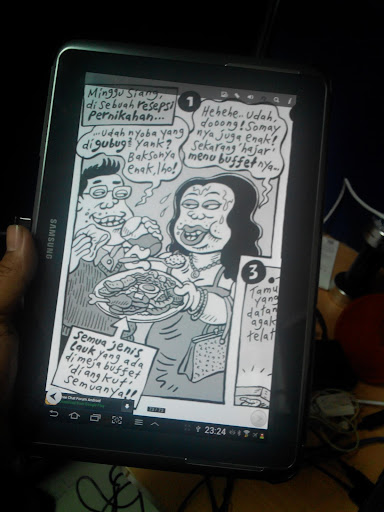 Minggu siang,
di sebuah resepsi
pernikahan...
1
...udah nyoba yang
di gubug² Yank?
Baksonya
enak, lho!
Hehehe... Udah,
dooong! Somay
nya juga enak!
Sekarang 'hajar'
menu buffet nya...
Semua jenis
lauk yang ada
di meja buffet
'diangkut'
semuanya!!
3
Tamu
yang
datan
agak
telat
SAMSUNG
Chat Forum Android
23:24